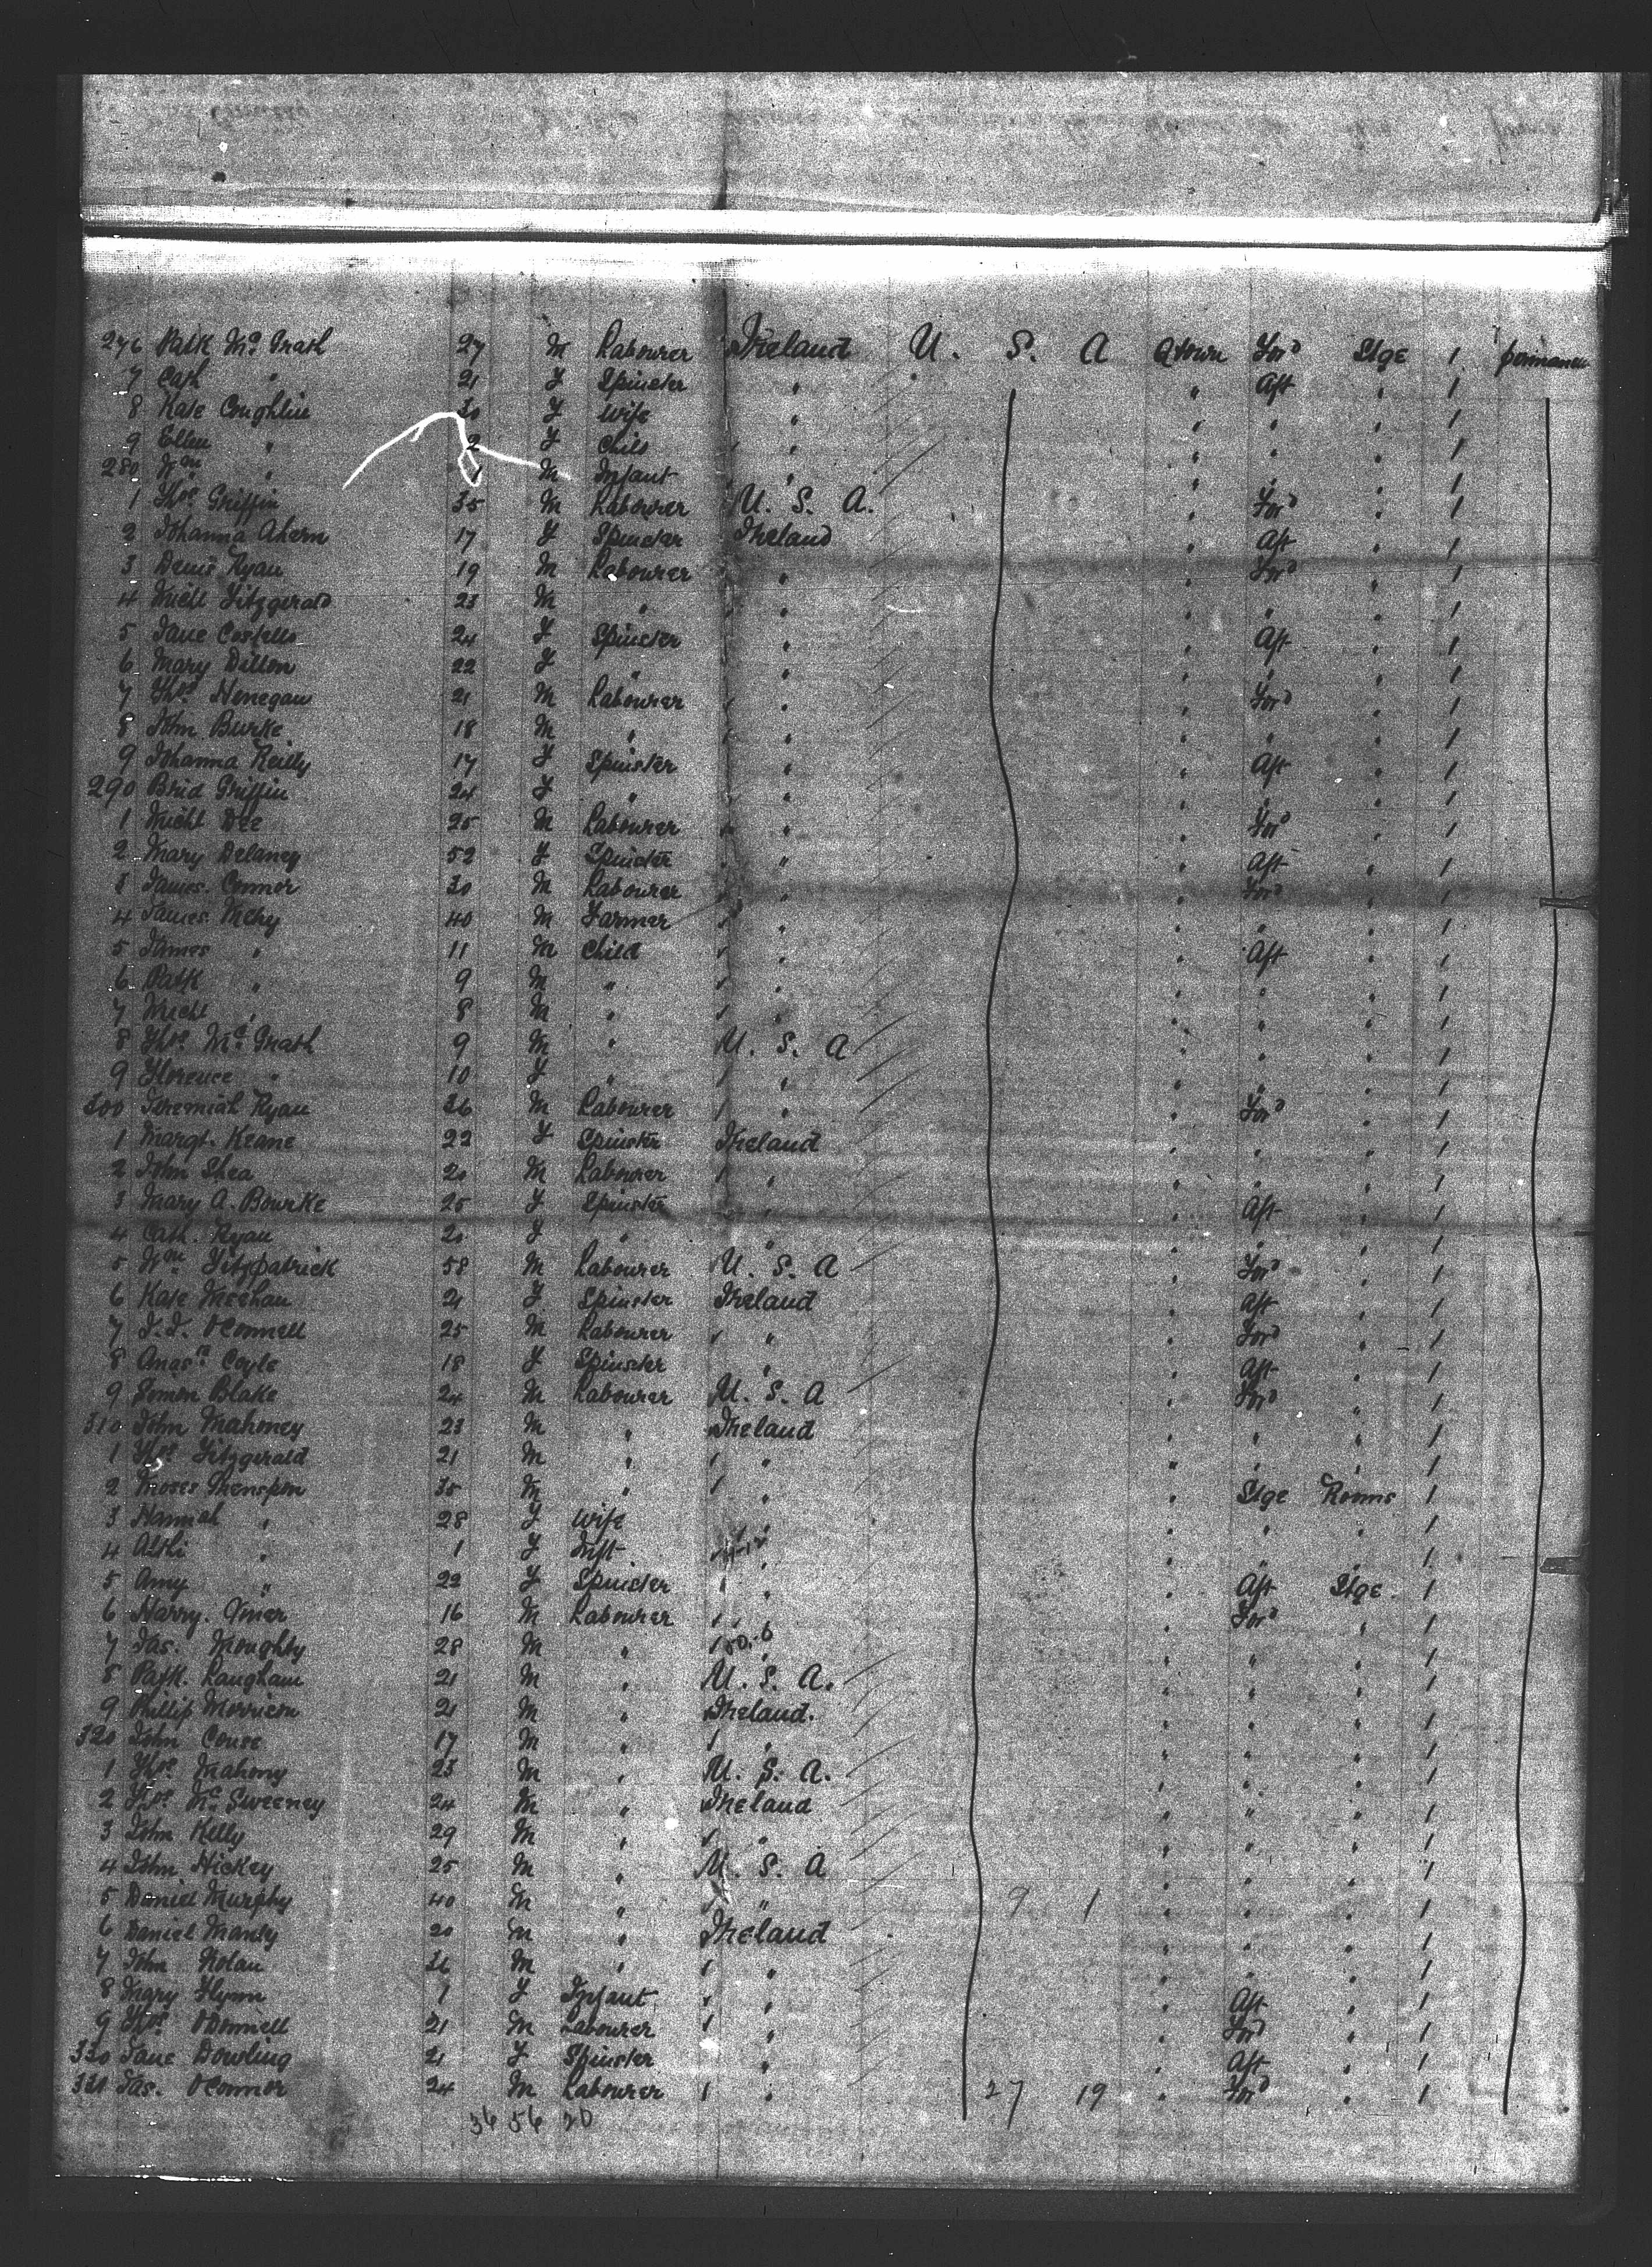 276 Patk McGrath 27 M Labourer Ireland U. S. A Qtown Ford Stge 1 permanen
7 Cath " 21 F Spinster " " Aft " 1
8 Kate Coughlin 30 F Wife " " " " 1
9 Ellen " 2 F Child " " " " 1
280 Wm " 1 M Infant " " " " 1
1 Thos Griffin 35 M Labourer U. S. A. " Ford " 1
2 Johanna Ahern 17 F Spinster Ireland " Aft " 1
3 Denis Ryan 19 M Labourer " " Ford " 1
4 Michl Fitzgerald 23 M " " " " " 1
5 Jane Costello 24 F Spinster " " Aft " 1
6 Mary Dillon 22 F " " " " " 1
7 Thos Henegan 21 M Labourer " " Ford " 1
8 John Burke 18 M " " " " " 1
9 Johanna Reilly 17 F Spinster " " Aft " 1
290 Brid Griffin 24 F " " " " " 1
1 Michl Dee 25 M Labourer " " Ford " 1
2 Mary Delaney 52 F Spinster " " Aft " 1
3 James Connor 30 M Labourer " " Ford " 1
4 James Mehy 40 M Farmer " " " " 1
5 James " 11 M Child " " Aft " 1
6 Patk " 9 M " " " " " 1
7 Michl " 8 M " " " " " 1
8 Thos McGrath 9 M " U. S. A " " " 1
9 Florence " 10 F " " " " " 1
300 Jeremiah Ryan 36 M Labourer " " Ford " 1
1 Margt. Keane 22 F Spinster Ireland " " " 1
2 John Shea 20 M Labourer " " " " 1
3 Mary A. Bourke 25 F Spinster " " Aft " 1
4 Cath. Ryan 20 F " " " " " 1
5 Wm Fitzpatrick 58 M Labourer U. S. A " Ford " 1
6 Kate Meehan 21 F Spinster Ireland " Aft " 1
7 J. J. OConnell 25 M Labourer " " Ford " 1
8 Anasn Coyle 18 F Spinster " " Aft " 1
9 Simon Blake 24 M Labourer U. S. A " Ford " 1
310 John Mahoney 23 M " Ireland " " " 1
1 Thos Fitzgerald 21 M " " " " " 1
2 Moses 35 M " " " Stge Rooms 1
3 Hannah " 28 F Wife " " " " 1
4 " 1 F Inft " " " " 1
5 Amy " 22 F Spinster " " Aft Stge 1
6 Harry. 16 M Labourer " " Ford " 1
7 Jas. Moughty 28 M " " " " " 1
8 Patk. Langham 21 M " U. S. A. " " " 1
9 Phillip Morrison 21 M " Ireland. " " " 1
320 John Couse 17 M " " " " " 1
1 Thos Mahony 23 M " U. S. A. " " " 1
2 Thos McSweeney 24 M " Ireland " " " 1
3 John Kelly 29 M " " " " " 1
4 John Hickey 25 M " U. S. A " " " 1
5 Daniel Murphy 40 M " " 9 1 " " " 1
6 Daniel Manly 20 M " Ireland " " " 1
7 John Nolan 36 M " " " " " 1
8 Mary Flynn 1 F Infant " " Aft " 1
9 Thos ODonnell 21 M Labourer " " Ford " 1
330 Jane Dowling 21 F Spinster " " Aft " 1
331 Jas. OConnor 24 M Labourer " 27 19 " Ford " 1
36 56 20